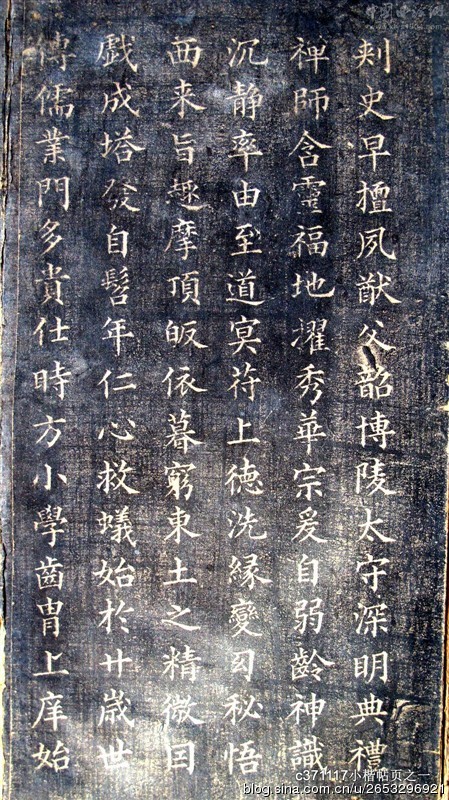 刾史早擅夙猷父韶博陵太守深明典禮
禪師含靈福地濯秀華宗爰自弱齡神識
沉静率由至道冥苻上德洗縁變勾秘悟
西来旨趣摩頂皈依暮窮東土之精微囙
戲成塔發自髫年仁心救蟻始於廿歲世
傳儒業門多貴仕時方小學齒胄上庠始
c371117小楷帖页之一
blog.sina.com.cn/u/2653296921